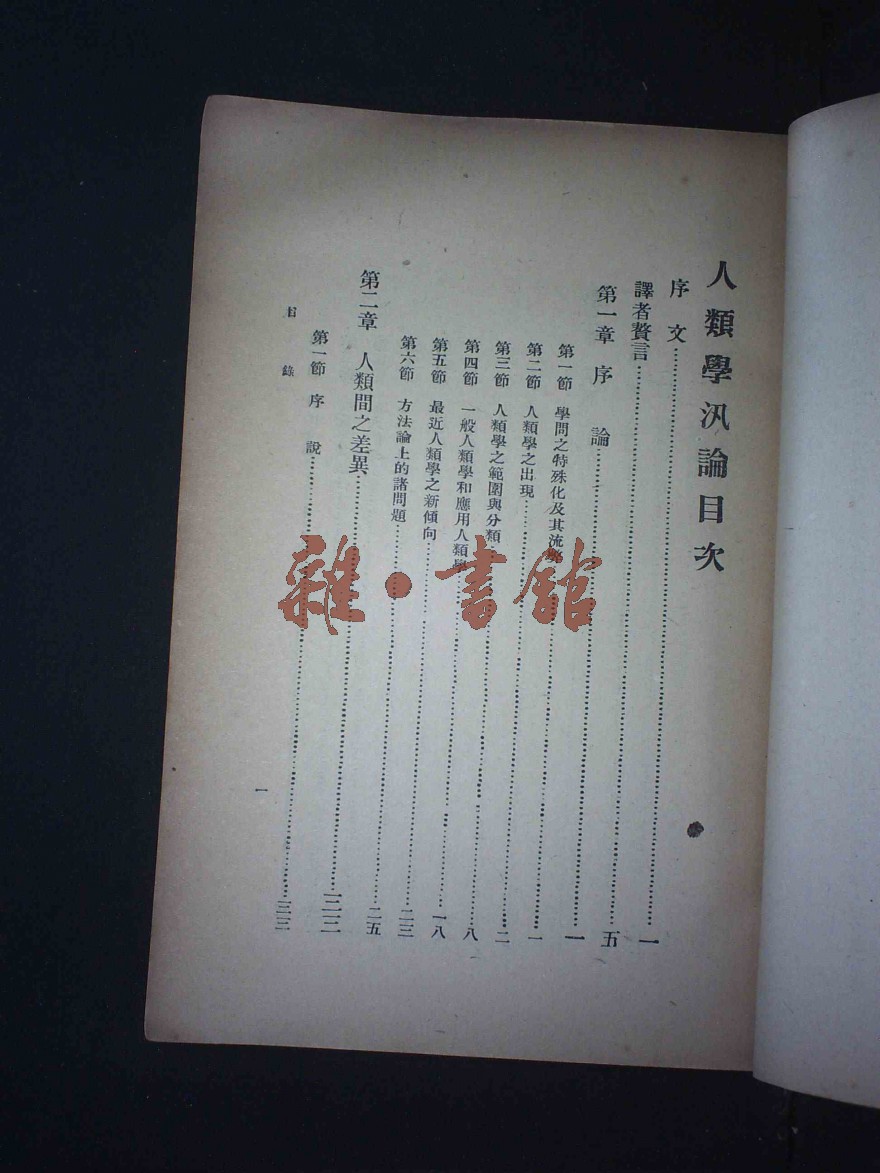 人類學汎論目次
序文……一
譯者贅言……五
第一章 序論……一
第一節 學問之特殊化及其流……一
第二節 人類學之出現……二
第三節 人類學之範圍與分類……八
第四節 一般人類學和應用人類學……一八
第五節 最近人類學之新傾向……二三
第六節 方法論上的諸問題……二五
第二章 人類間之差異……
第一節 序說……
目錄
一
雜·書館